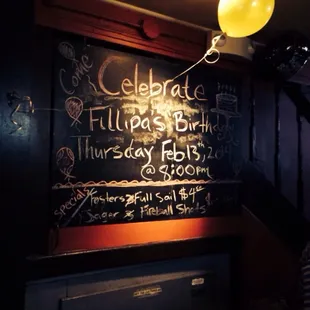 Come
Celebrate
Fillipa's Birthday
Thursday Feb 13th,
@ 8:00pm
specials
Fosters & Full Sail $4
& Fireball Shots